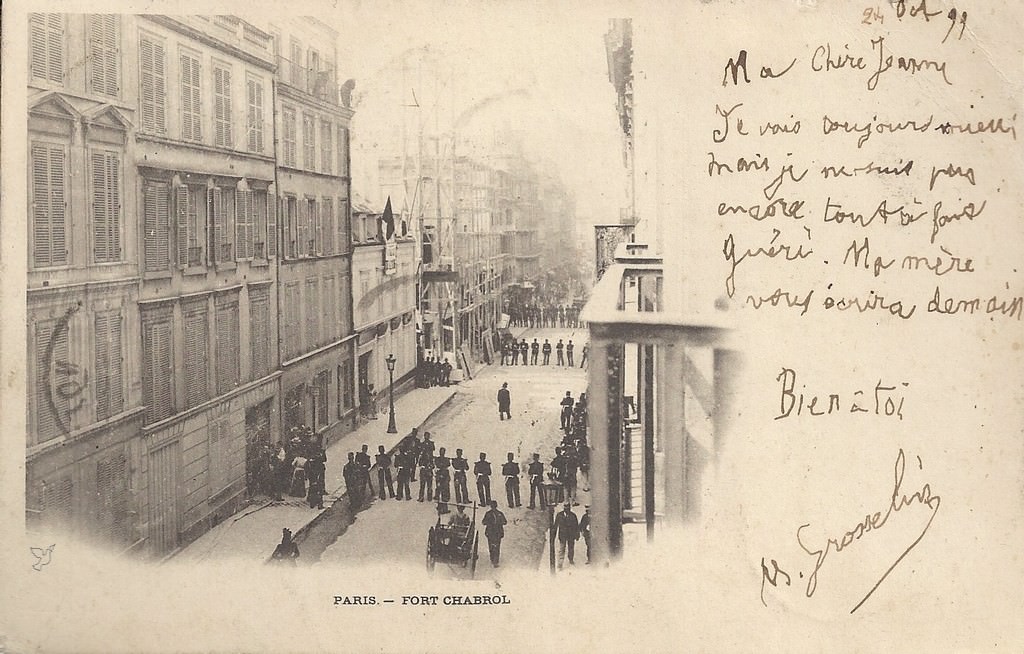 24 Oct 99
Ma Chère Jeanne
Je vais toujours mieux
mais je ne suis pas
encore tout à fait
guéri. Ma mère
vous écrira demain
Bien à toi
Grosselin
PARIS. — FORT CHABROL